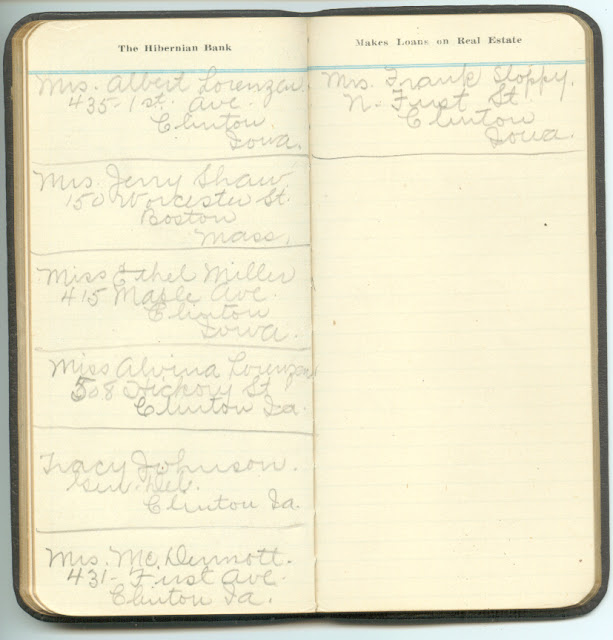 The Hibernian Bank
Mrs. Albert Lorenzen.
435-1st. Ave.
Clinton.
Iowa.
Mrs. Jerry Shaw
150 Worcester St.
Boston
Mass.
Miss Ethel Miller
415 Maple Ave.
Clinton
Iowa.
Miss Alvina Lorenzen
508 Hickory St
Clinton Ia.
Tracy Johnson.
Gen. Del.
Clinton Ia.
Mrs. Mc, Dermott.
431- First Ave.
Clinton Ia.
Makes Loans on Real Estate
Mrs. Frank Sloppy.
N. First St.
Clinton
Iowa.